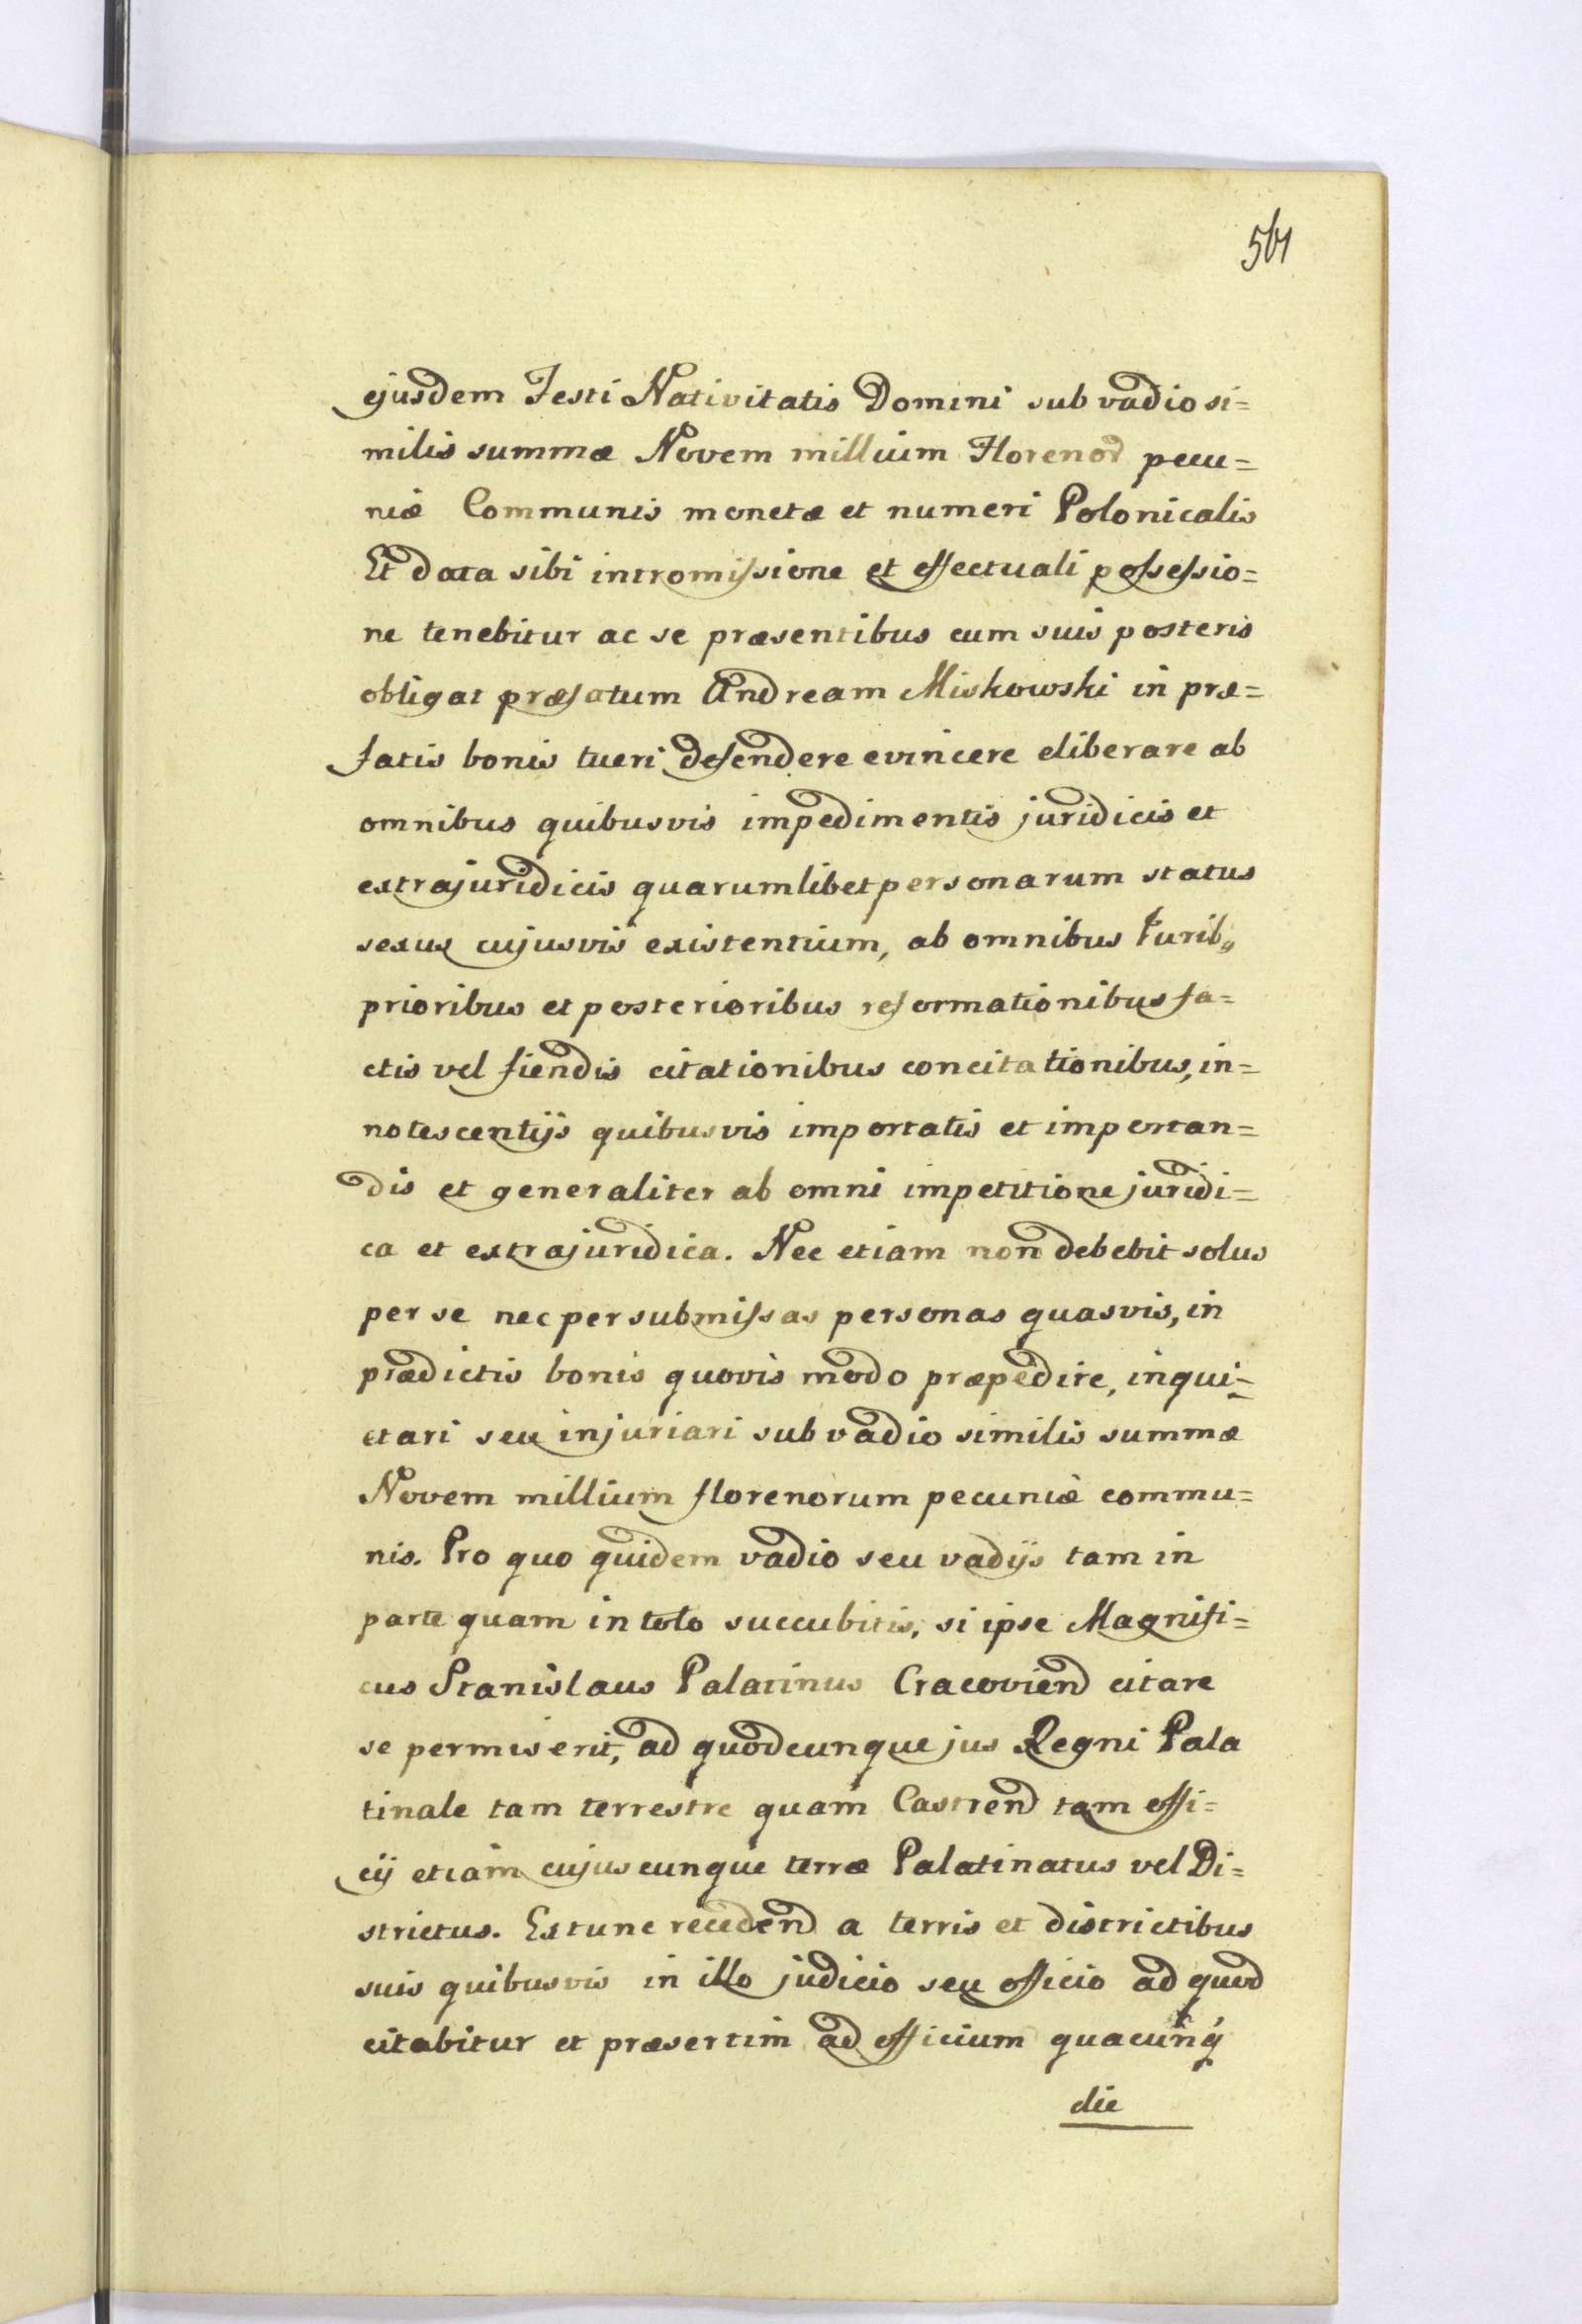 561
ejusdem Festi Nativitatis Domini sub vadio si=
milis summæ Novem millium Florenor pecu=
niæ Communis monetæ et numeri Polonicalis
Et data sibi intromissione et effectuali possessio=
ne tenebitur ac se præsentibus cum suis posteris
obligat præfatum Andream Miskowski in præ=
fatis bonis tueri defendere evincere eliberare ab
omnibus quibusvis impedimentis juridicis et
extrajuridicis quarumlibet personarum status
sexus cujusvis existentium, ab omnibus Jurib,
prioribus et posterioribus reformationibus fa=
ctis vel fiendis citationibus concitationibus, in=
notescentijs quibusvis importatis et importan=
dis et generaliter ab omni impetitione juridi=
ca et extrajuridica. Nec etiam non debebit solus
per se nec per submissas personas quasvis, in
prædictis bonis quovis modo præpedire, inqui=
etari seu injuriari sub vadio similis summæ
Novem millium florenorum pecuniæ commu=
nis. Pro quo quidem vadio seu vadijs tam in
parte quam in toto succubitis, si ipse Magnifi=
cus Stanislaus Palatinus Cracovien citare
se permiserit, ad quodcunque jus Regni Pala
tinale tam terrestre quam Castren tam offi=
cij etiam cujuscunque terræ Palatinatus vel Di=
strictus. Extunc receden a terris et districtibus
suis quibusvis in illo judicio seu officio ad quod
citabitur et præsertim ad officium quacunq
die